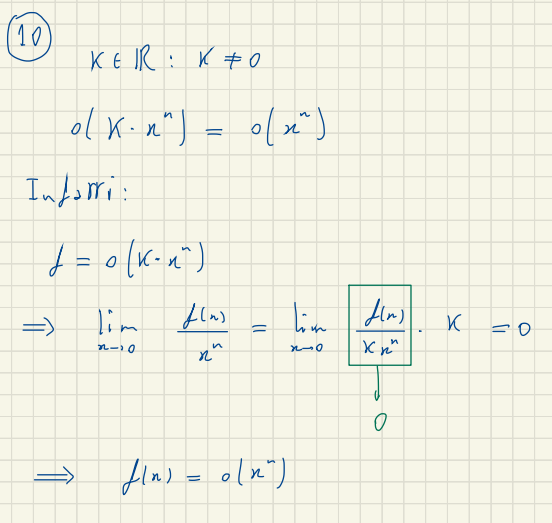 10
K ∈ ℝ : K ≠ 0
o(K · x^n) = o(x^n)
Infatti:
f = o(K · x^n)
⟹ lim_{x→0} f(x)/x^n = lim_{x→0} f(x)/(K x^n) · K = 0
0
⟹ f(x) = o(x^n)